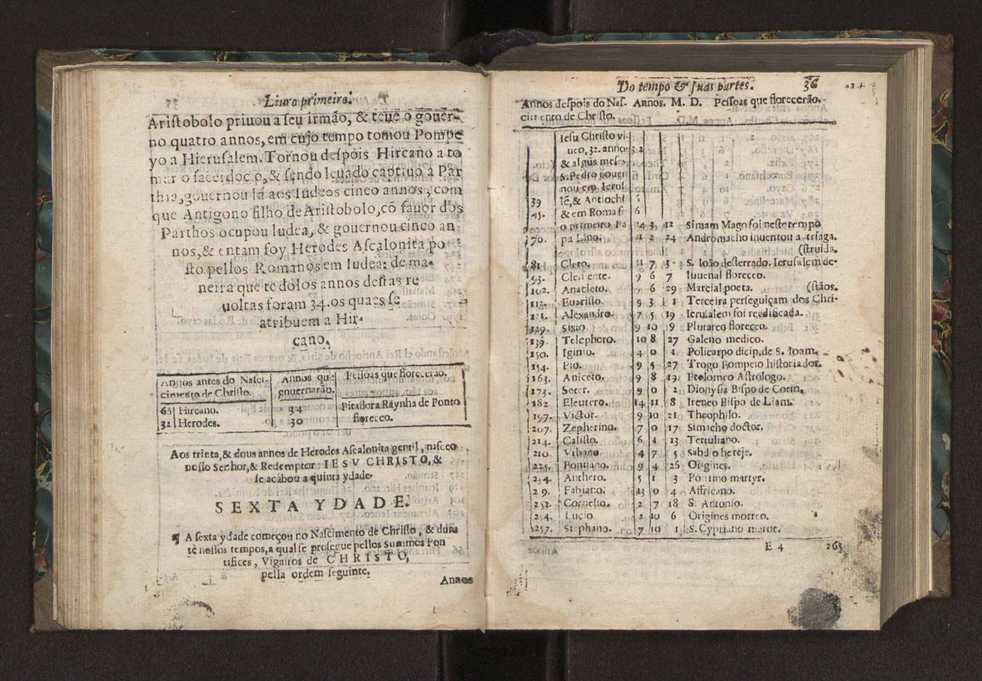 Liuro primeiro.
Aristobolo priuou a seu irmão, & teue o gouer-
no quatro annos, em cujo tempo tomou Pompe
yo a Hierusalem. Tornou despois Hircano a to
mar o sacerdocio, & sendo leuado captiuo a Par
thia, gouernou là aos Iudeos cinco annos, com
que Antigono filho de Aristobolo, cõ fauor dos
Parthos ocupou Iudea, & gouernou cinco an
nos, & entam foy Herodes Ascalonita po
sto pellos Romanos em Iudea: de ma-
neira que tẽdo os annos destas re
uoltas foram 34. os quaes se
atribuem a Hir-
cano.
Annos antes do Nasci-
cimento de Christo.
Annos que
gouernarão.
Pessoas que florecerão.
65 Hircano. 34
Pitadora Raynha de Ponto
floreceo.
31 Herodes. 30
Aos trinta, & dous annos de Herodes Ascalonita gentil, nasceo
nosso Senhor, & Redemptor IESV CHRISTO, &
se acabou a quinta ydade.
SEXTA YDADE.
¶ A sexta ydade começou no Nascimento de Christo, & dura
tè nossos tempos, a qual se prosegue pellos Summos Pon
tifices, Vigairos de CHRISTO,
pella ordem seguinte.
Annos
Do tempo & suas partes. 36
Annos despois do Nas- Annos. M. D. Pessoas que florecerão.
cimento de Christo.
Iesu Christo vi-
uco, 32. anno 3 2
& algũs meses
S. Pedro gouer
nou em Ierusl
39 lẽ, & Antiochi
& em Roma 6
o primeiro Pa 12 Simam Mago foi neste tempo
70. pa Lino. 11 2 24 Andromacho inuentou a triaga.
(struida.
81 Cleto. 7 S. Ioão desterrado. Ierusalem de-
93. Clemente. 9 6 7 Iuuenal floreceo.
102. Anacleto. 9 6 29 Marcial poeta. (stãos.
112. Euaristo. 9 3 1 Terceira perseguiçam dos Chri-
121. Alexandro. 7 5 19 Ierusalem foi reedificada.
129. Sisto 9 10 9 Plutarco floreceo.
139. Telephoro. 10 8 27 Galeno medico.
150. Iginio. 4 0 1 Policarpo dicip. de S. Ioam.
154. Pio. 9 5 27 Trogo Pompeio historiador.
163. Aniceto. 9 8 Ptolomeo Astrologo.
173. Soter. 9 0 2 Dionysia Bispo de Corin.
182. Eleutero. 14 11 8 Ireneo Bispo de Liam.
197. Victor. 9 10 21 Theophilo.
207. Zepherino. 7 0 17 Simacho doctor.
214. Calisto. 6 1 13 Tertuliano.
210. Vrbano 4 7 5 Sabelio hereje.
225. Pontiano. 9 4 26 Origines.
234. Anthero. 5 1 3 Pontimo martyr.
Fabiano. 0 4 Affricano.
252. Cornelio. 2 7 18 S. Antonio.
254. Lucio. 2 10 6 Origines morreo.
257. Stephano. 7 10 1 S. Cypriano martr.
E 4 263